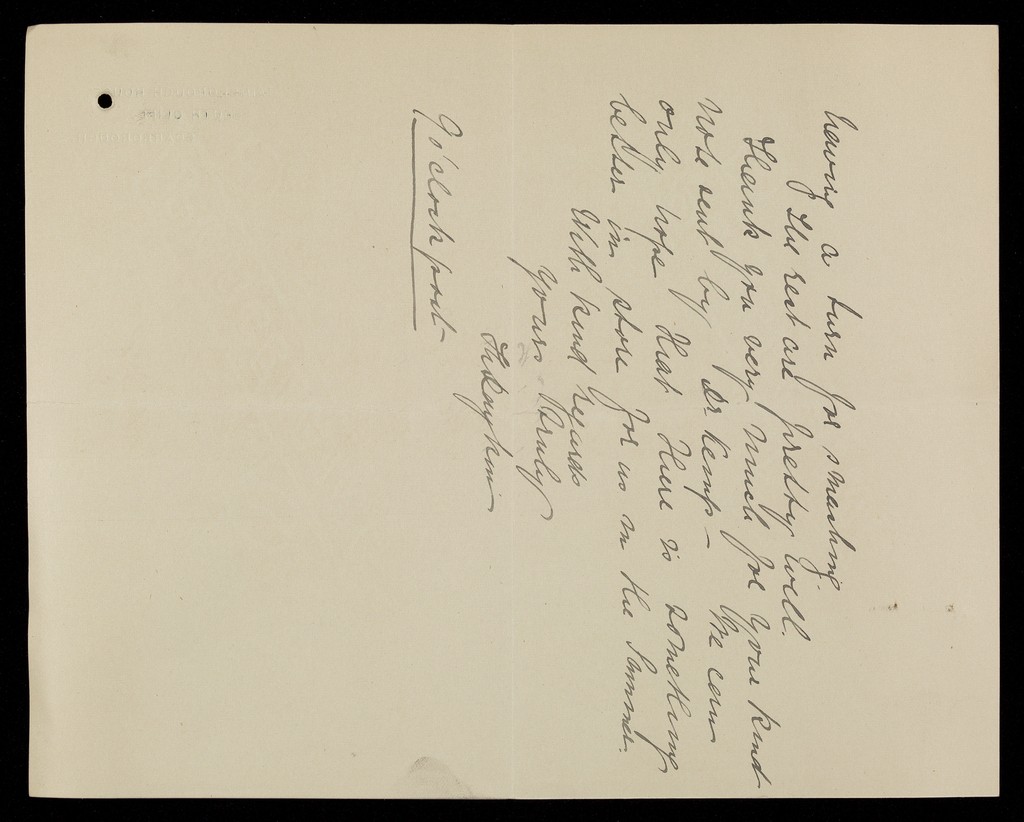 having a turn for smashing.
The rest are pretty well.
Thank you very much for your kind
note sent by Dr Kemp – We can
only hope that there is something
better in store for us in the Summer.
With kind regards
Yours truly
9 o'clock post